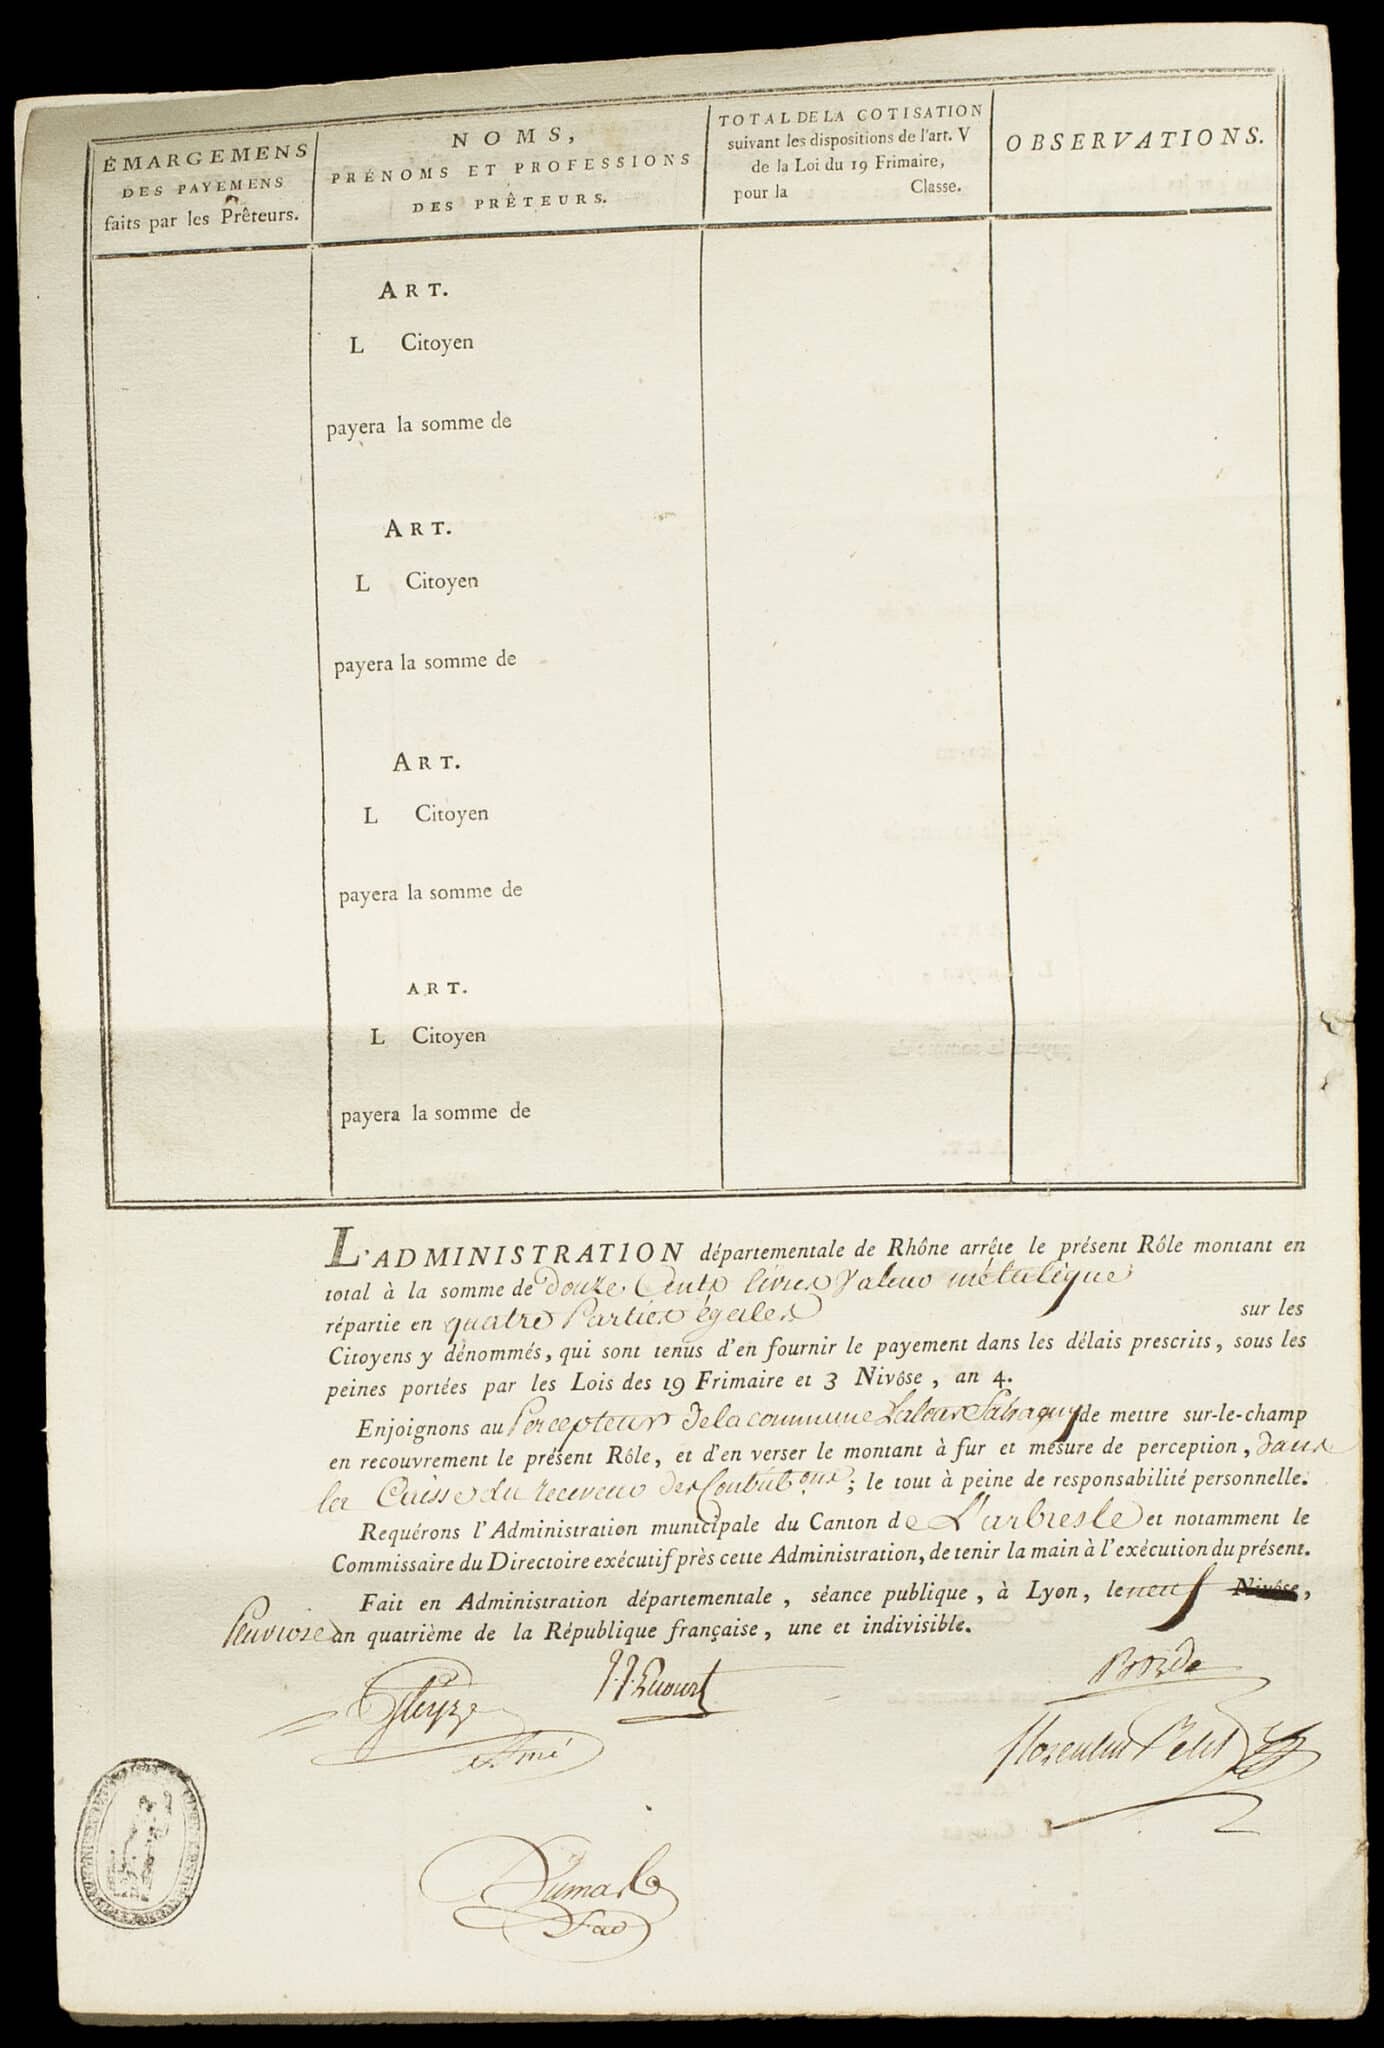 ÉMARGEMENS
DES PAYEMENS
faits par les Prêteurs.
NOMS,
PRÉNOMS ET PROFESSIONS
DES PRÊTEURS.
TOTAL DE LA COTISATION
suivant les dispositions de l'art. V
de la Loi du 19 Frimaire,
pour la Classe.
OBSERVATIONS.
ART.
L Citoyen
payera la somme de
ART.
L Citoyen
payera la somme de
ART.
L Citoyen
payera la somme de
ART.
L Citoyen
payera la somme de
L'ADMINISTRATION départementale de Rhône arrête le présent Rôle montant en
total à la somme de douze Cents livres Valeur métalique
répartie en quatre Parties égales sur les
Citoyens y dénommés, qui sont tenus d'en fournir le payement dans les délais prescrits, sous les
peines portées par les Lois des 19 Frimaire et 3 Nivôse, an 4.
Enjoignons au Percepteur de la commune Latour Salvagny de mettre sur-le-champ
en recouvrement le présent Rôle, et d'en verser le montant à fur et mesure de perception, dans
la Caisse du receveur des Contribons; le tout à peine de responsabilité personnelle.
Requérons l'Administration municipale du Canton de L'arbresle et notamment le
Commissaire du Directoire exécutif près cette Administration, de tenir la main à l'exécution du présent.
Fait en Administration départementale, séance publique, à Lyon, le neuf Nivôse,
Pluviose an quatrième de la République française, une et indivisible.
Borde
Florentin Petit